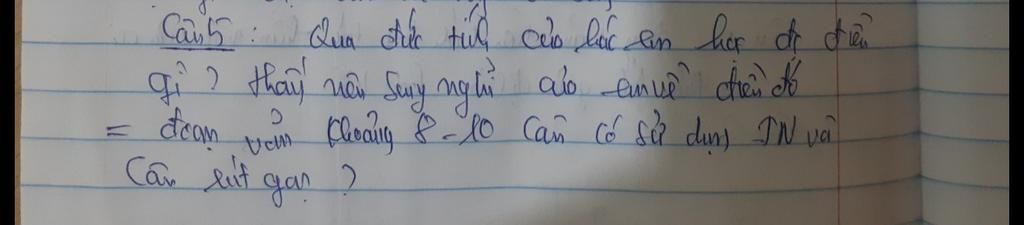 Câu 5 : Qua đức tính của bác em học đc điều
gì ? Hãy nêu suy nghĩ của em về điều đó
= đoạn văn khoảng 8-10 Câu có sử dụng TN và
Câu rút gọn ?